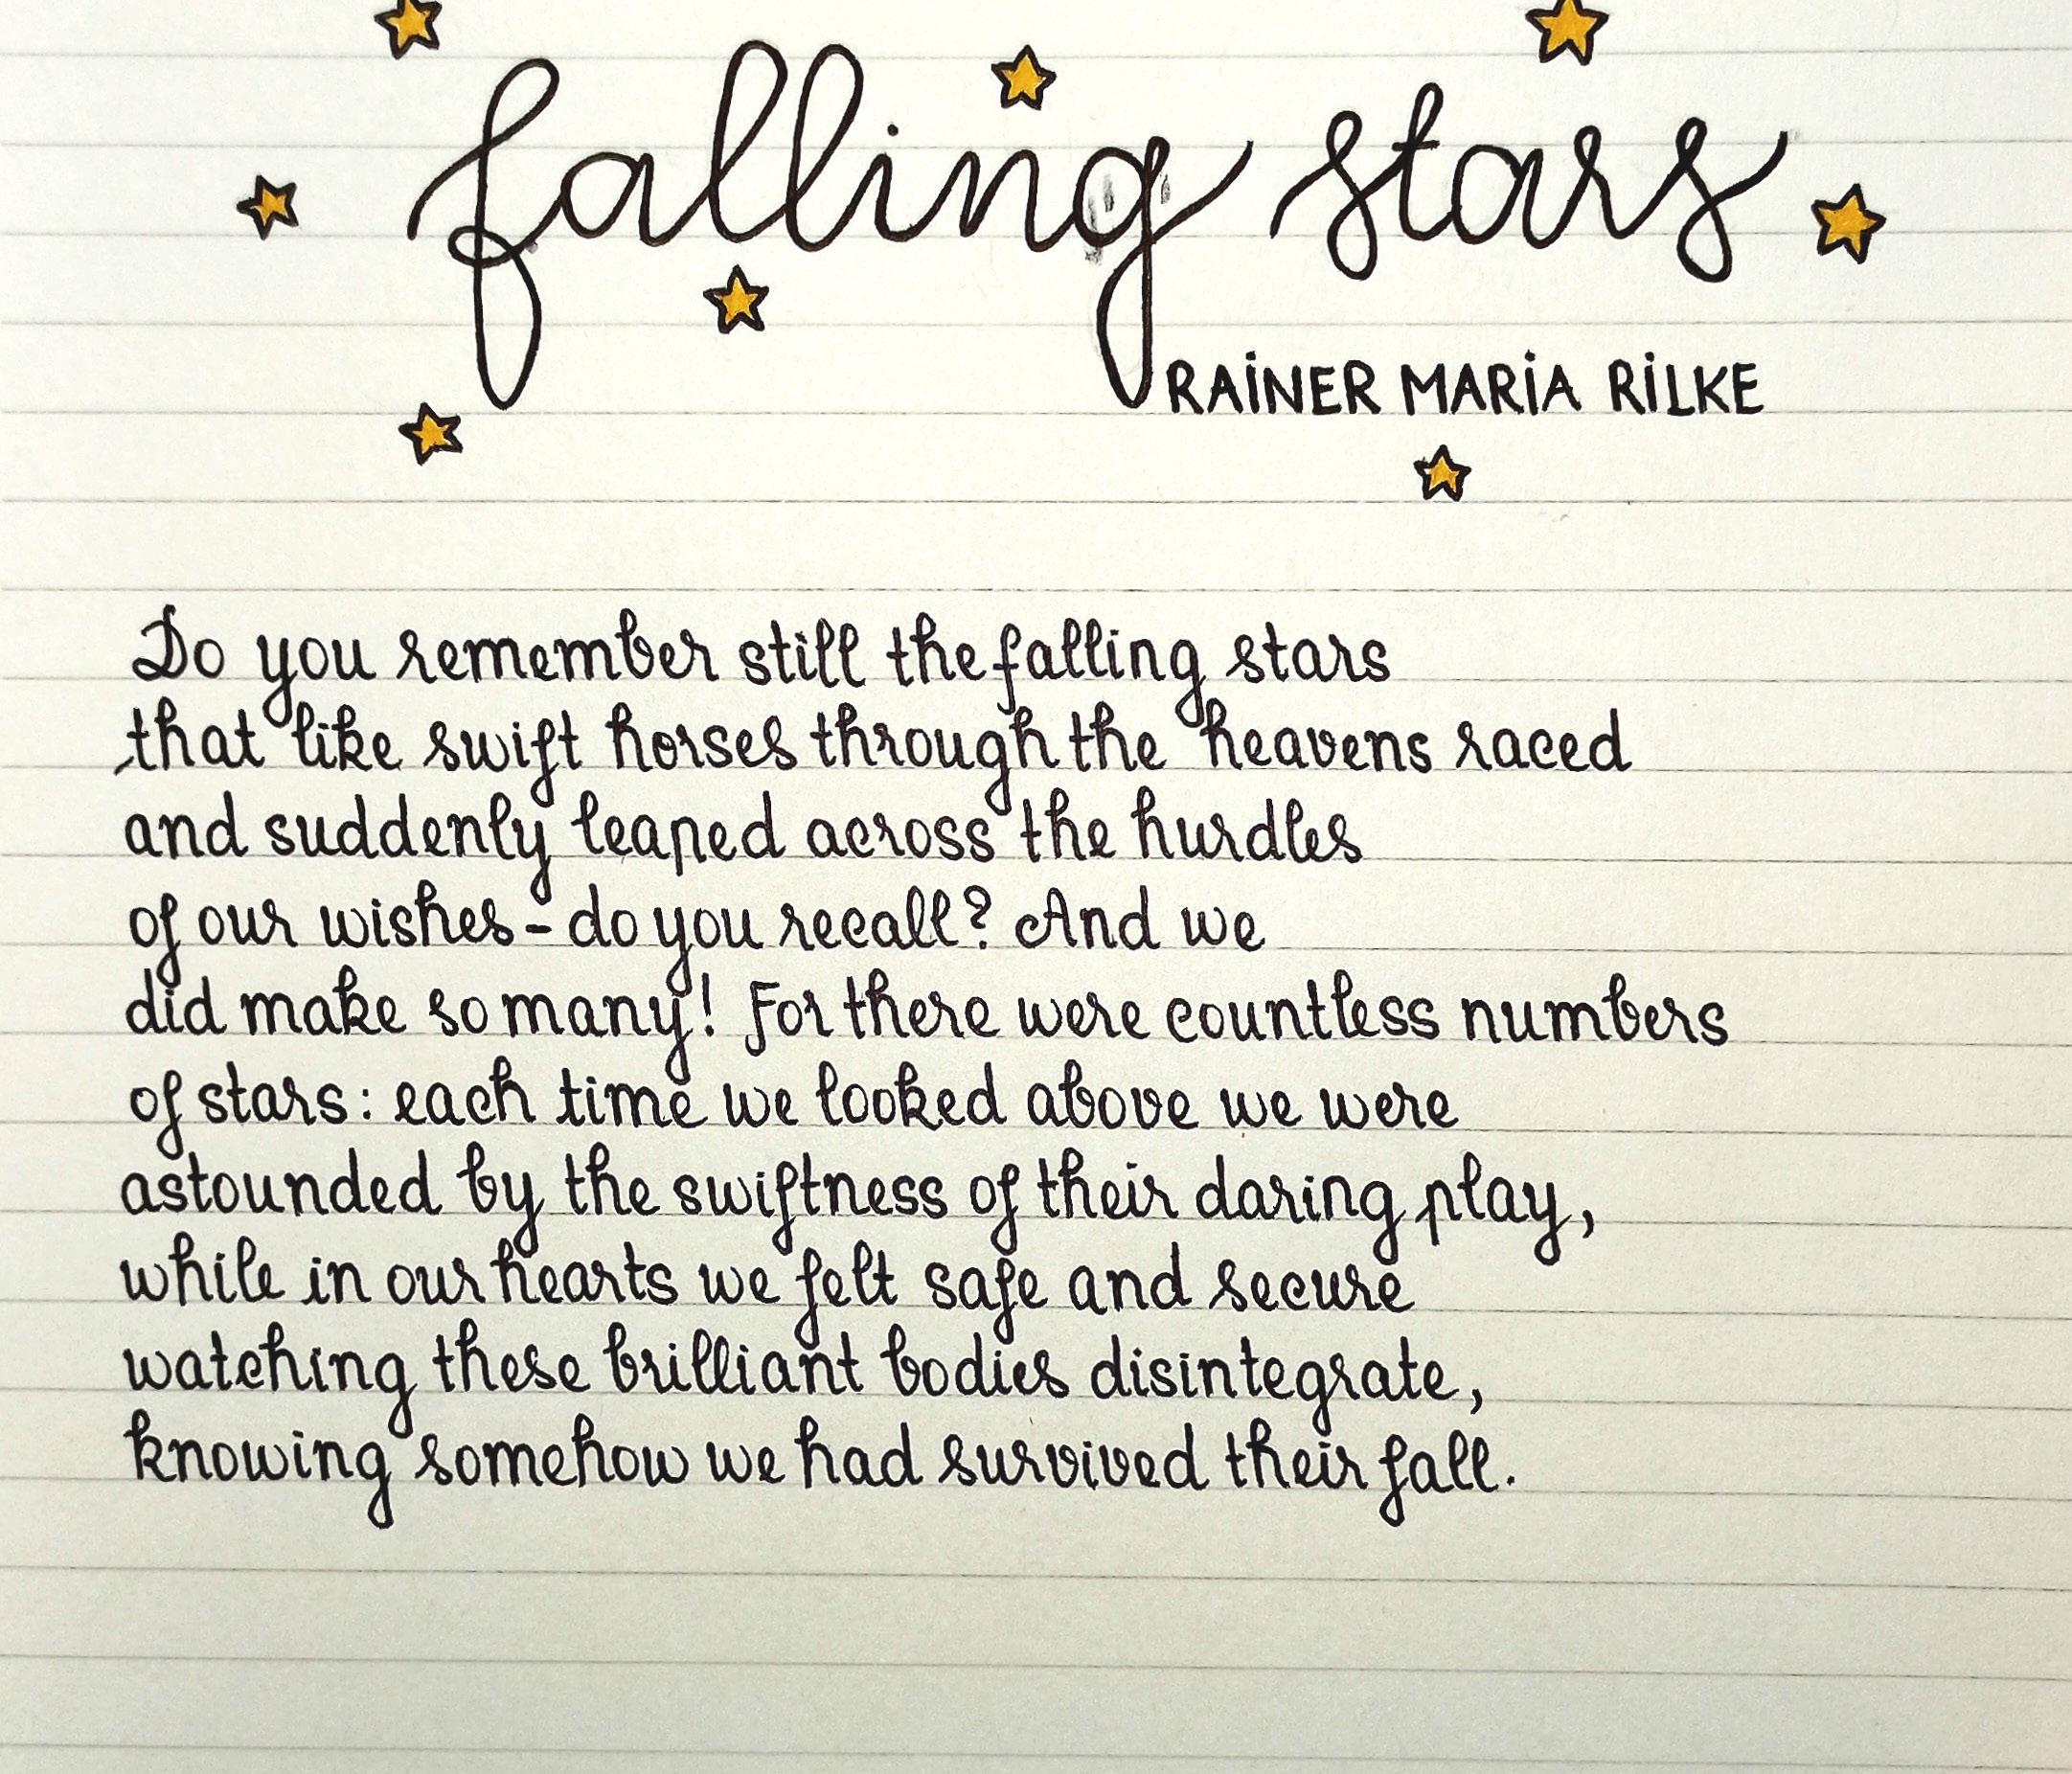 falling stars
RAINER MARIA RILKE
Do you remember still the falling stars
that like swift horses through the heavens raced
and suddenly leaped across the hurdles
of our wishes - do you recall? And we
did make so many! For there were countless numbers
of stars: each time we looked above we were
astounded by the swiftness of their daring play,
while in our hearts we felt safe and secure
watching these brilliant bodies disintegrate,
knowing somehow we had survived their fall.